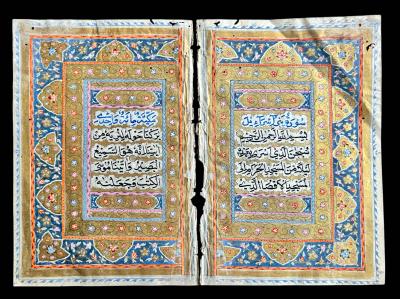 سورة بنی اسرآئیل
بسم الله الرحمن الرحيم
سبحن الذي اسرى بعبده
ليلا من المسجد الحرام الى
المسجد الاقصا الذي
مكية مائة
بركنا حوله لنريه من
ايتنا انه هو السميع
البصير واتينا موسى
الكتب وجعلنه